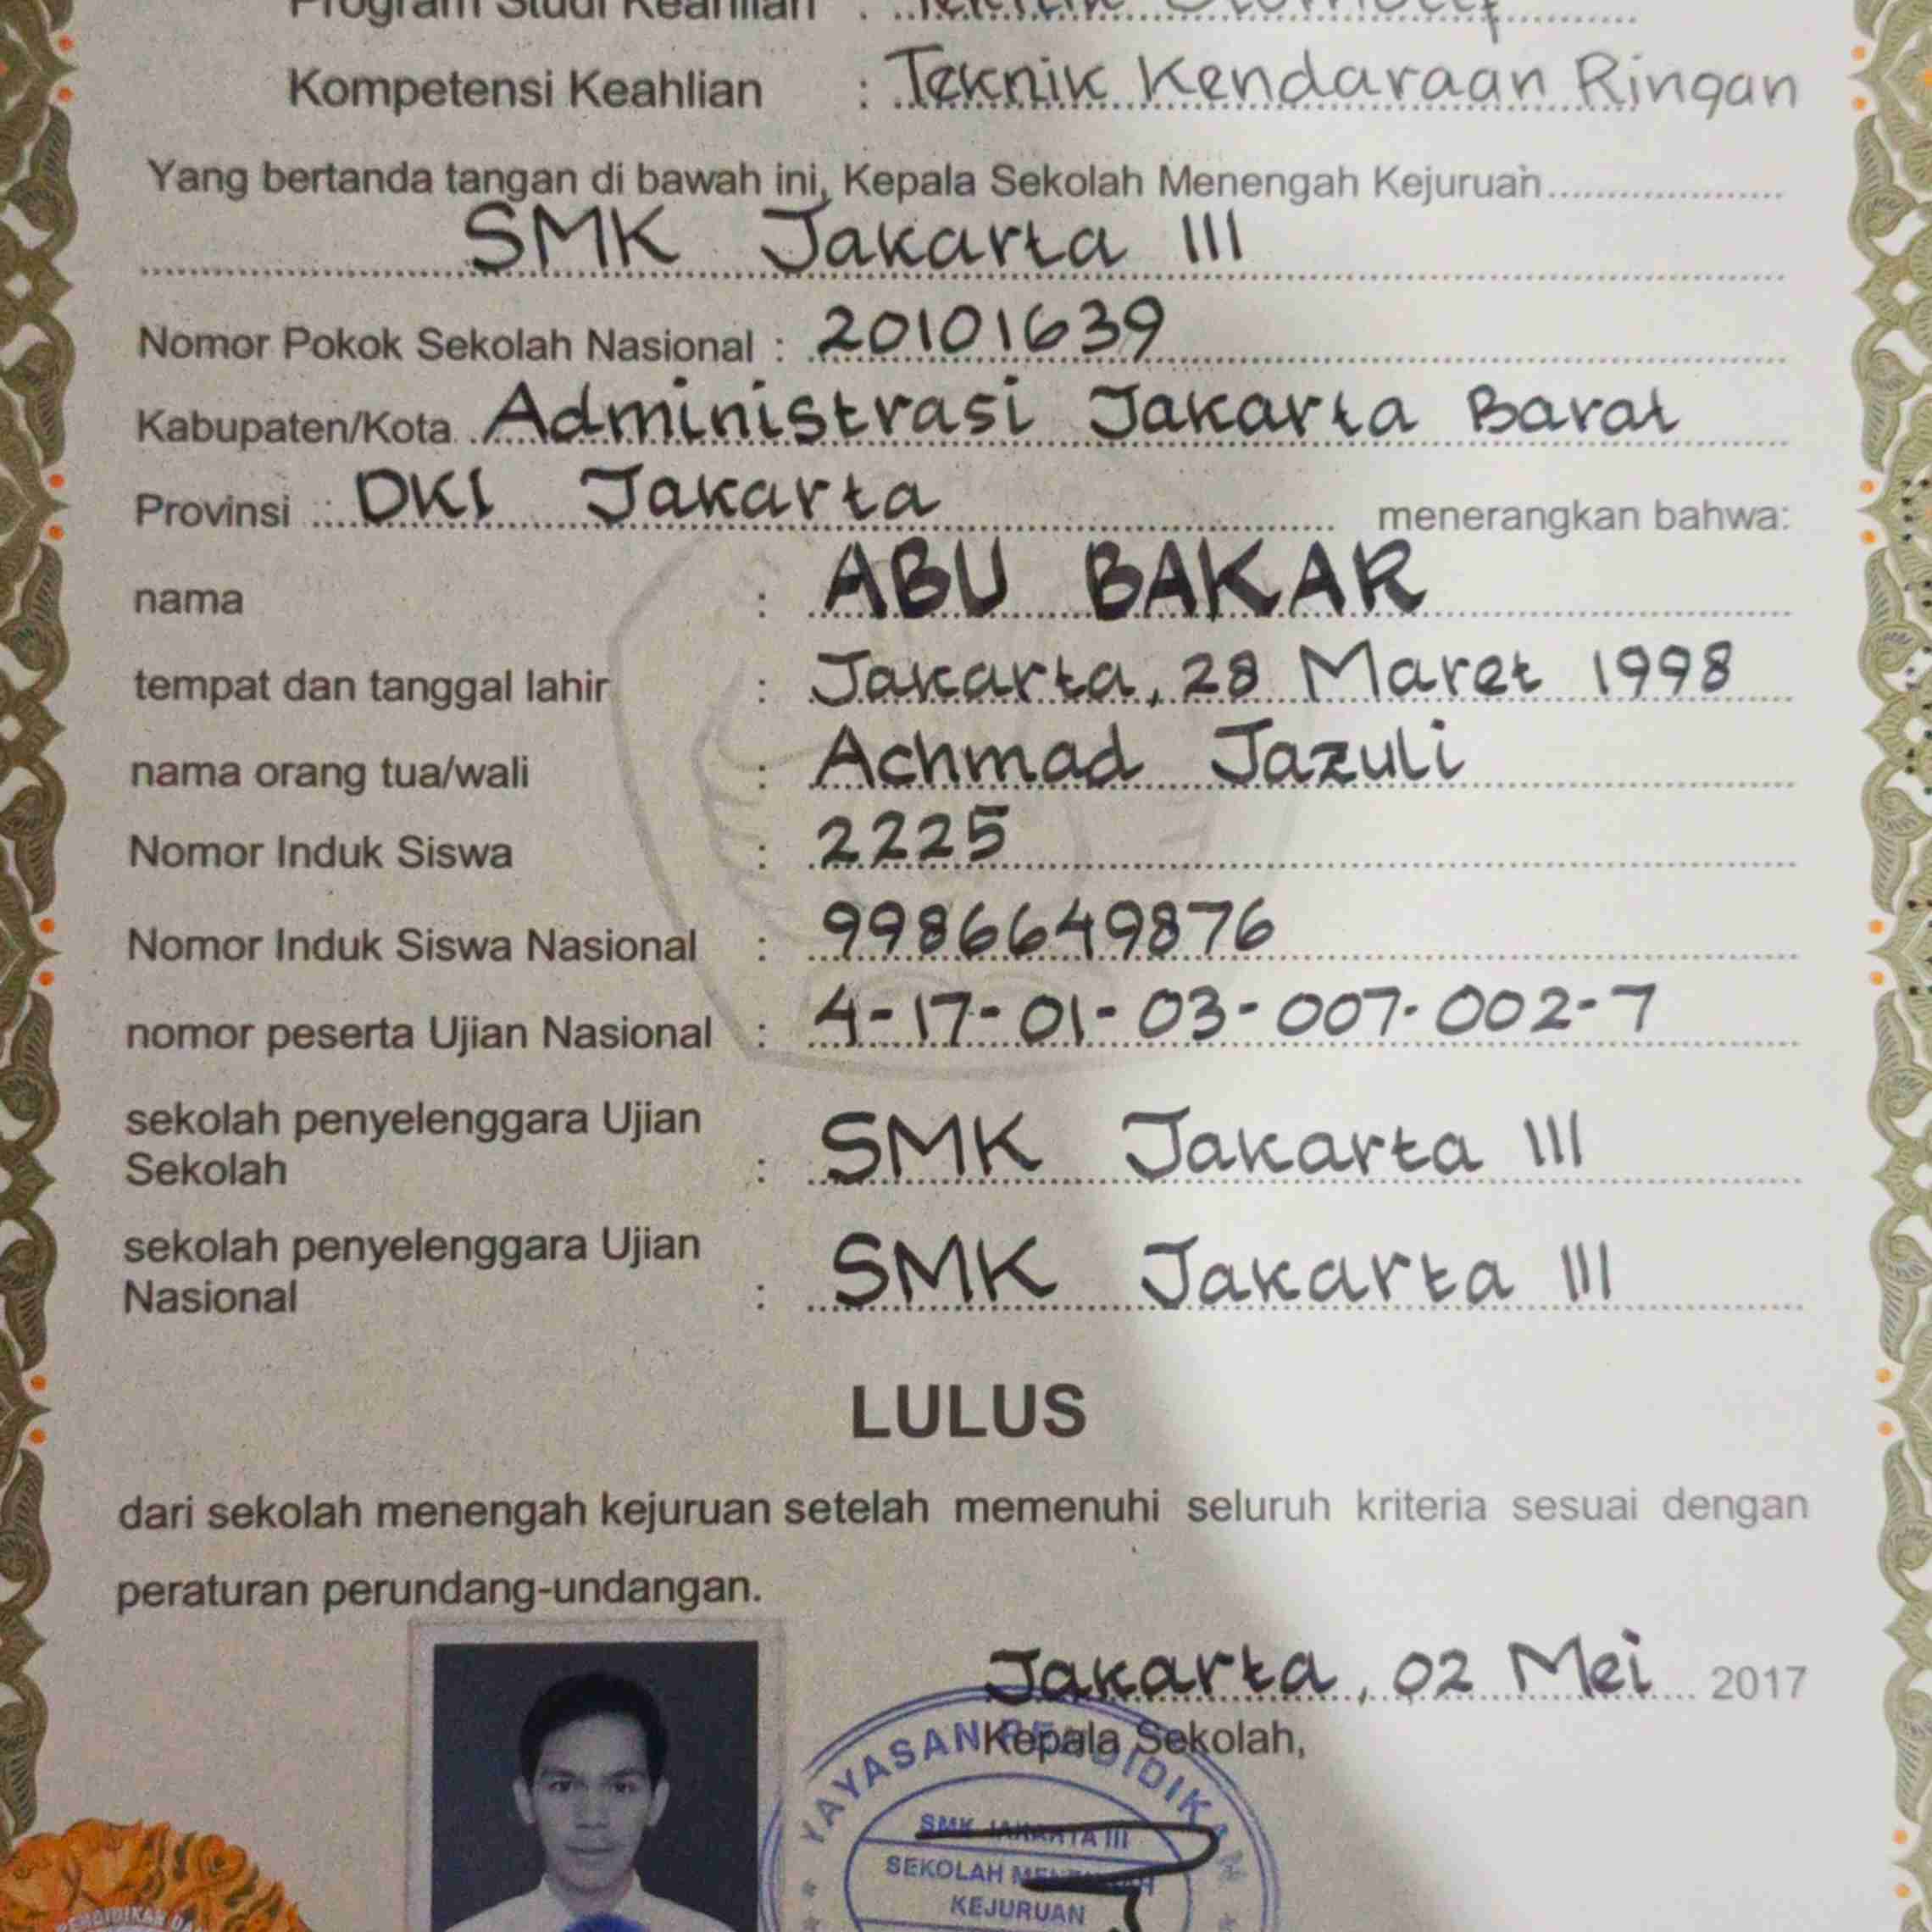 Program Studi Keahlian : Teknik Otomotif
Kompetensi Keahlian : Teknik Kendaraan Ringan
Yang bertanda tangan di bawah ini, Kepala Sekolah Menengah Kejuruan
SMK Jakarta III
Nomor Pokok Sekolah Nasional : 20101639
Kabupaten/Kota Administrasi Jakarta Barat
Provinsi : DKI Jakarta menerangkan bahwa:
nama : ABU BAKAR
tempat dan tanggal lahir : Jakarta, 28 Maret 1998
nama orang tua/wali : Achmad Jazuli
Nomor Induk Siswa : 2225
Nomor Induk Siswa Nasional : 9986649876
nomor peserta Ujian Nasional : 4-17-01-03-007-002-7
sekolah penyelenggara Ujian
Sekolah : SMK Jakarta III
sekolah penyelenggara Ujian
Nasional : SMK Jakarta III
LULUS
dari sekolah menengah kejuruan setelah memenuhi seluruh kriteria sesuai dengan
peraturan perundang-undangan.
Jakarta, 02 Mei 2017
Kepala Sekolah,
YAYASAN PENDIDIKAN
SMK JAKARTA III
SEKOLAH MENENGAH
KEJURUAN